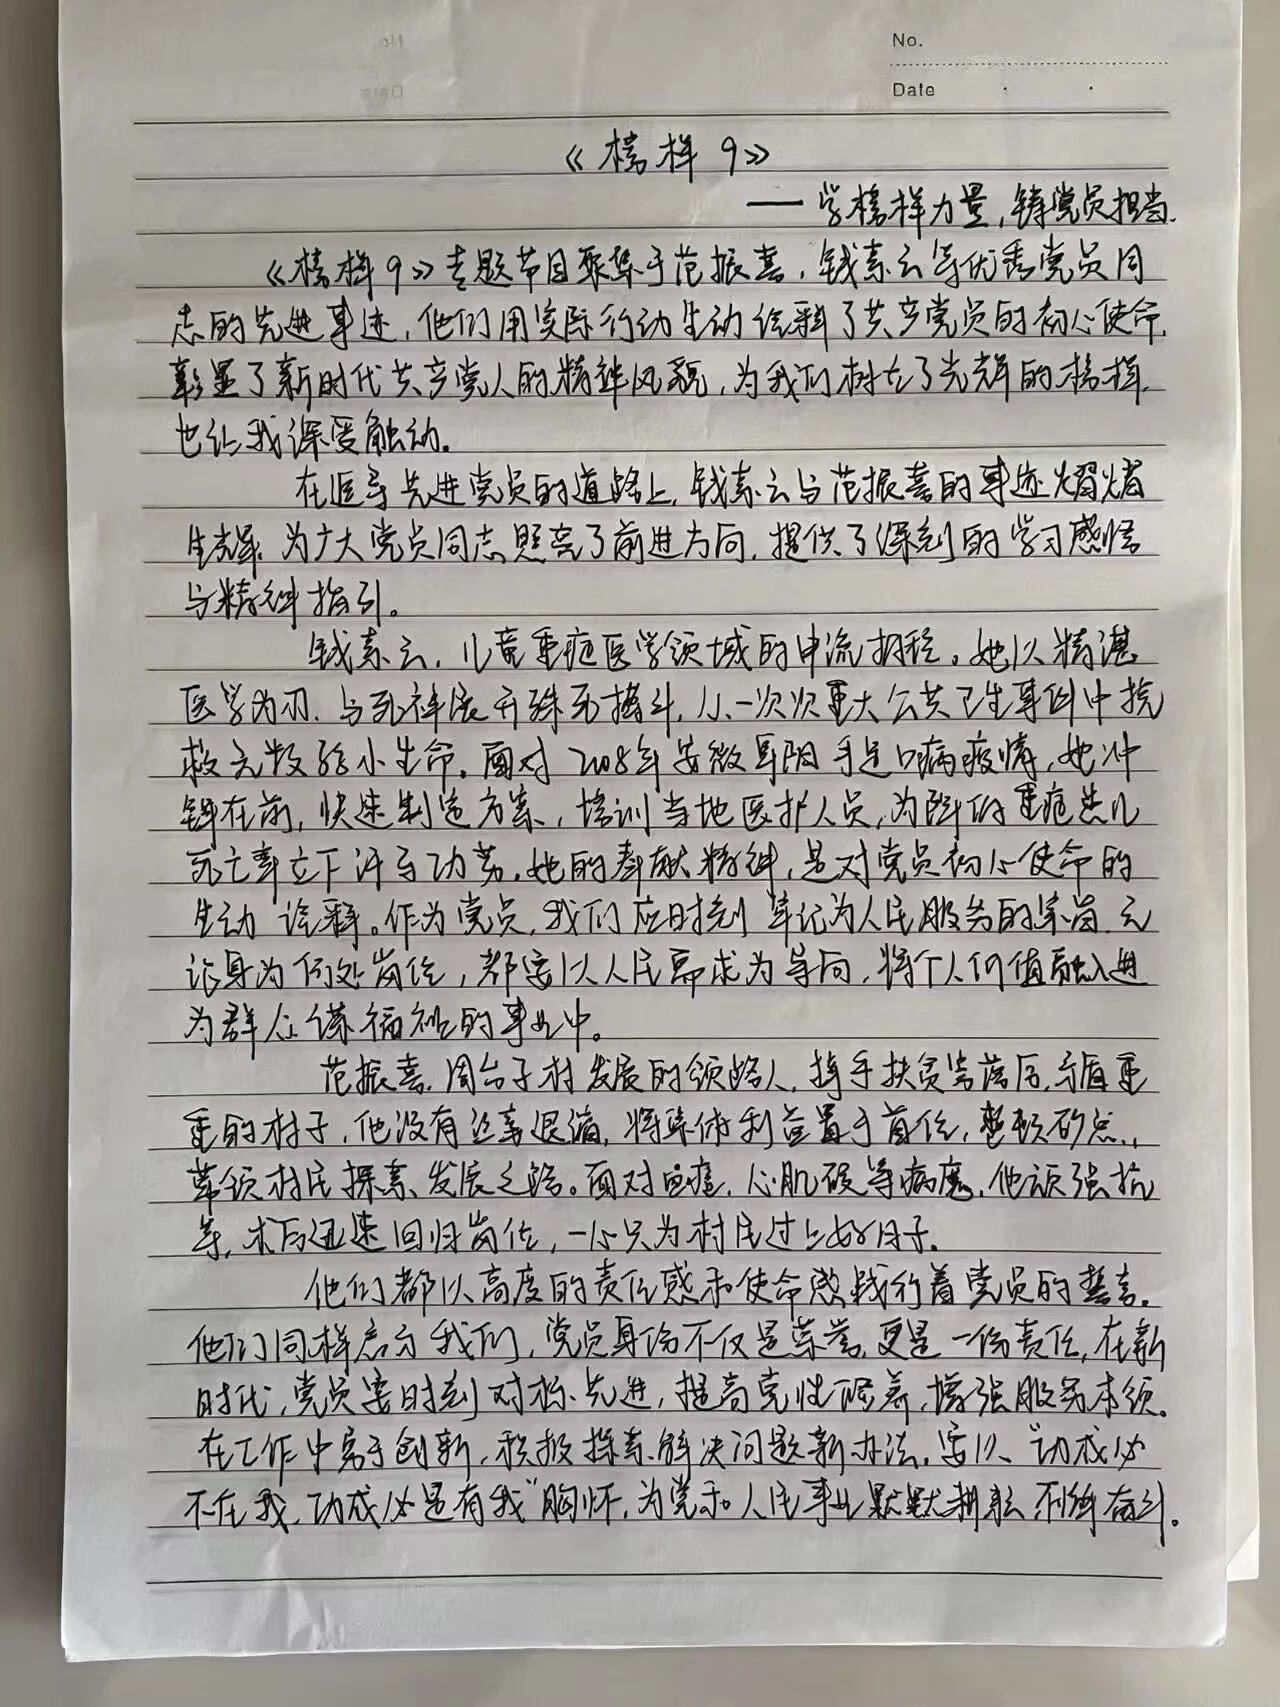 No.
Date
《榜样9》
——学榜样力量,铸党员担当.
《榜样9》专题节目聚焦于范振喜,钱素云等优秀党员同
志的先进事迹,他们用实际行动生动诠释了共产党员的初心使命,
彰显了新时代共产党人的精神风貌,为我们树立了光辉的榜样,
也让我深受触动。
在追寻先进党员的道路上,钱素云与范振喜的事迹熠熠
生辉,为广大党员同志照亮了前进方向,提供了深刻的学习感悟
与精神指引。
钱素云,儿童重症医学领域的中流砥柱。她以精湛
医学为刃,与死神展开殊死搏斗,从一次次重大公共卫生事件中抢
救无数弱小生命。面对2008年安徽阜阳手足口病疫情,她冲
锋在前,快速制定方案,培训当地医护人员,为降的重症患儿
死亡率立下汗马功劳。她的奉献精神,是对党员初心使命的
生动诠释。作为党员,我们应时刻牢记为人民服务的宗旨,无
论身为何处岗位,都要以人民需求为导向,将个人价值融入进
为群众谋福祉的事业中。
范振喜,周台子村发展的领路人,接手扶贫ענ落后,矛盾重
重的村子,他没有丝毫退缩,将集体利益置于首位,整顿砂点,
带领村民探索发展之路。面对血癌,心肌梗等病魔,他顽强抗
争,术后迅速回归岗位,一心只为村民过上好日子。
他们都以高度的责任感和使命感践行着党员的誓言。
他们同样启示我们,党员身份不仅是荣誉,更是一份责任,在新
时代,党员要时刻对标先进,提高党性修养,增强服务本领。
在工作中勇于创新,积极探索解决问题新办法,要以“功成必
不在我,功成必是有我”胸怀,为党和人民事业默默耕耘,不懈奋斗。